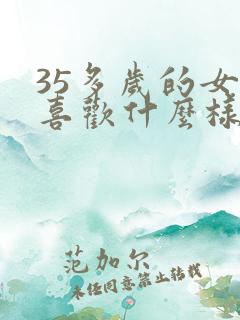 35多歲的女
喜歡什麼樣
范加尔
未经同意禁止转载